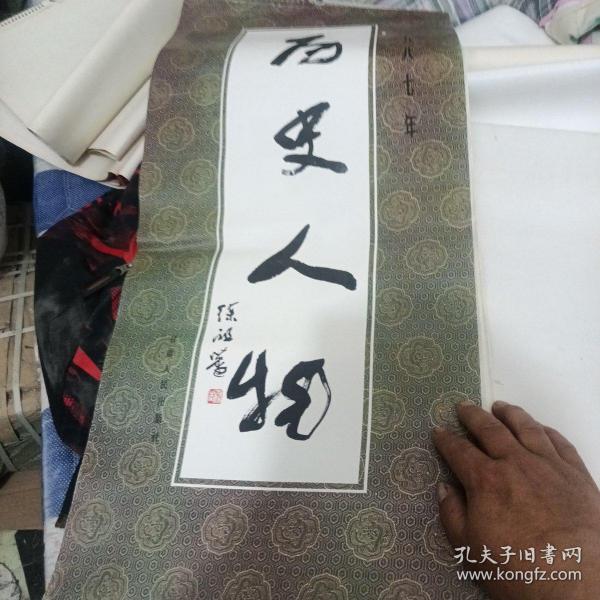 八七年
历史人物
徐祖蕃
人民出版社
孔夫子旧书网
www.kongfz.com